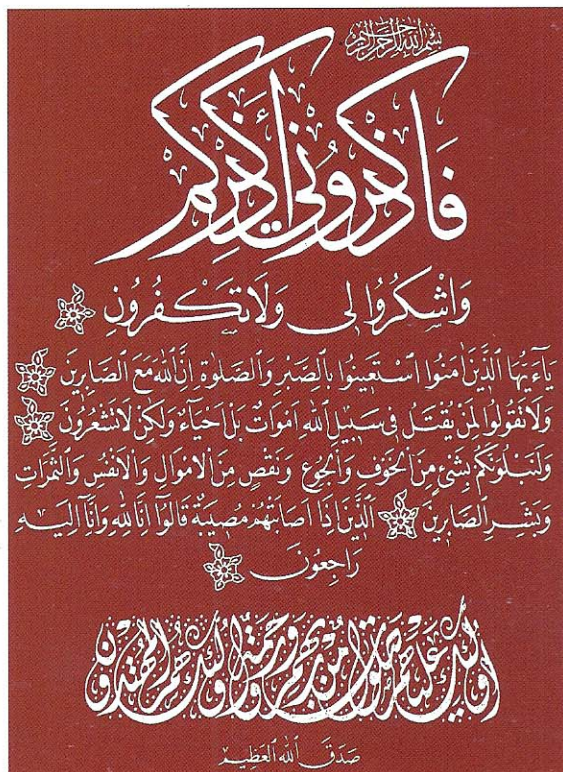 بِسْمِ اللهِ الرَّحْمٰنِ الرَّحِيمِ
فَاذْكُرُونِي أَذْكُرْكُمْ
وَاشْكُرُوا لِي وَلَا تَكْفُرُونِ
يَا أَيُّهَا الَّذِينَ آمَنُوا اسْتَعِينُوا بِالصَّبْرِ وَالصَّلٰوةِ اِنَّ اللهَ مَعَ الصَّابِرِينَ
وَلَا تَقُولُوا لِمَنْ يُقْتَلُ فِي سَبِيلِ اللهِ اَمْوَاتٌ بَلْ اَحْيَاءٌ وَلٰكِنْ لَا تَشْعُرُونَ
وَلَنَبْلُوَنَّكُمْ بِشَيْءٍ مِنَ الْخَوْفِ وَالْجُوعِ وَنَقْصٍ مِنَ الْاَمْوَالِ وَالْاَنْفُسِ وَالثَّمَرَاتِ
وَبَشِّرِ الصَّابِرِينَ الَّذِينَ اِذَا اَصَابَتْهُمْ مُصِيبَةٌ قَالُوا اِنَّا لِلّٰهِ وَاِنَّا اِلَيْهِ
رَاجِعُونَ
اُولٰئِكَ عَلَيْهِمْ صَلَوَاتٌ مِنْ رَبِّهِمْ وَرَحْمَةٌ وَاُولٰئِكَ هُمُ الْمُهْتَدُونَ
صَدَقَ اللهُ الْعَظِيم